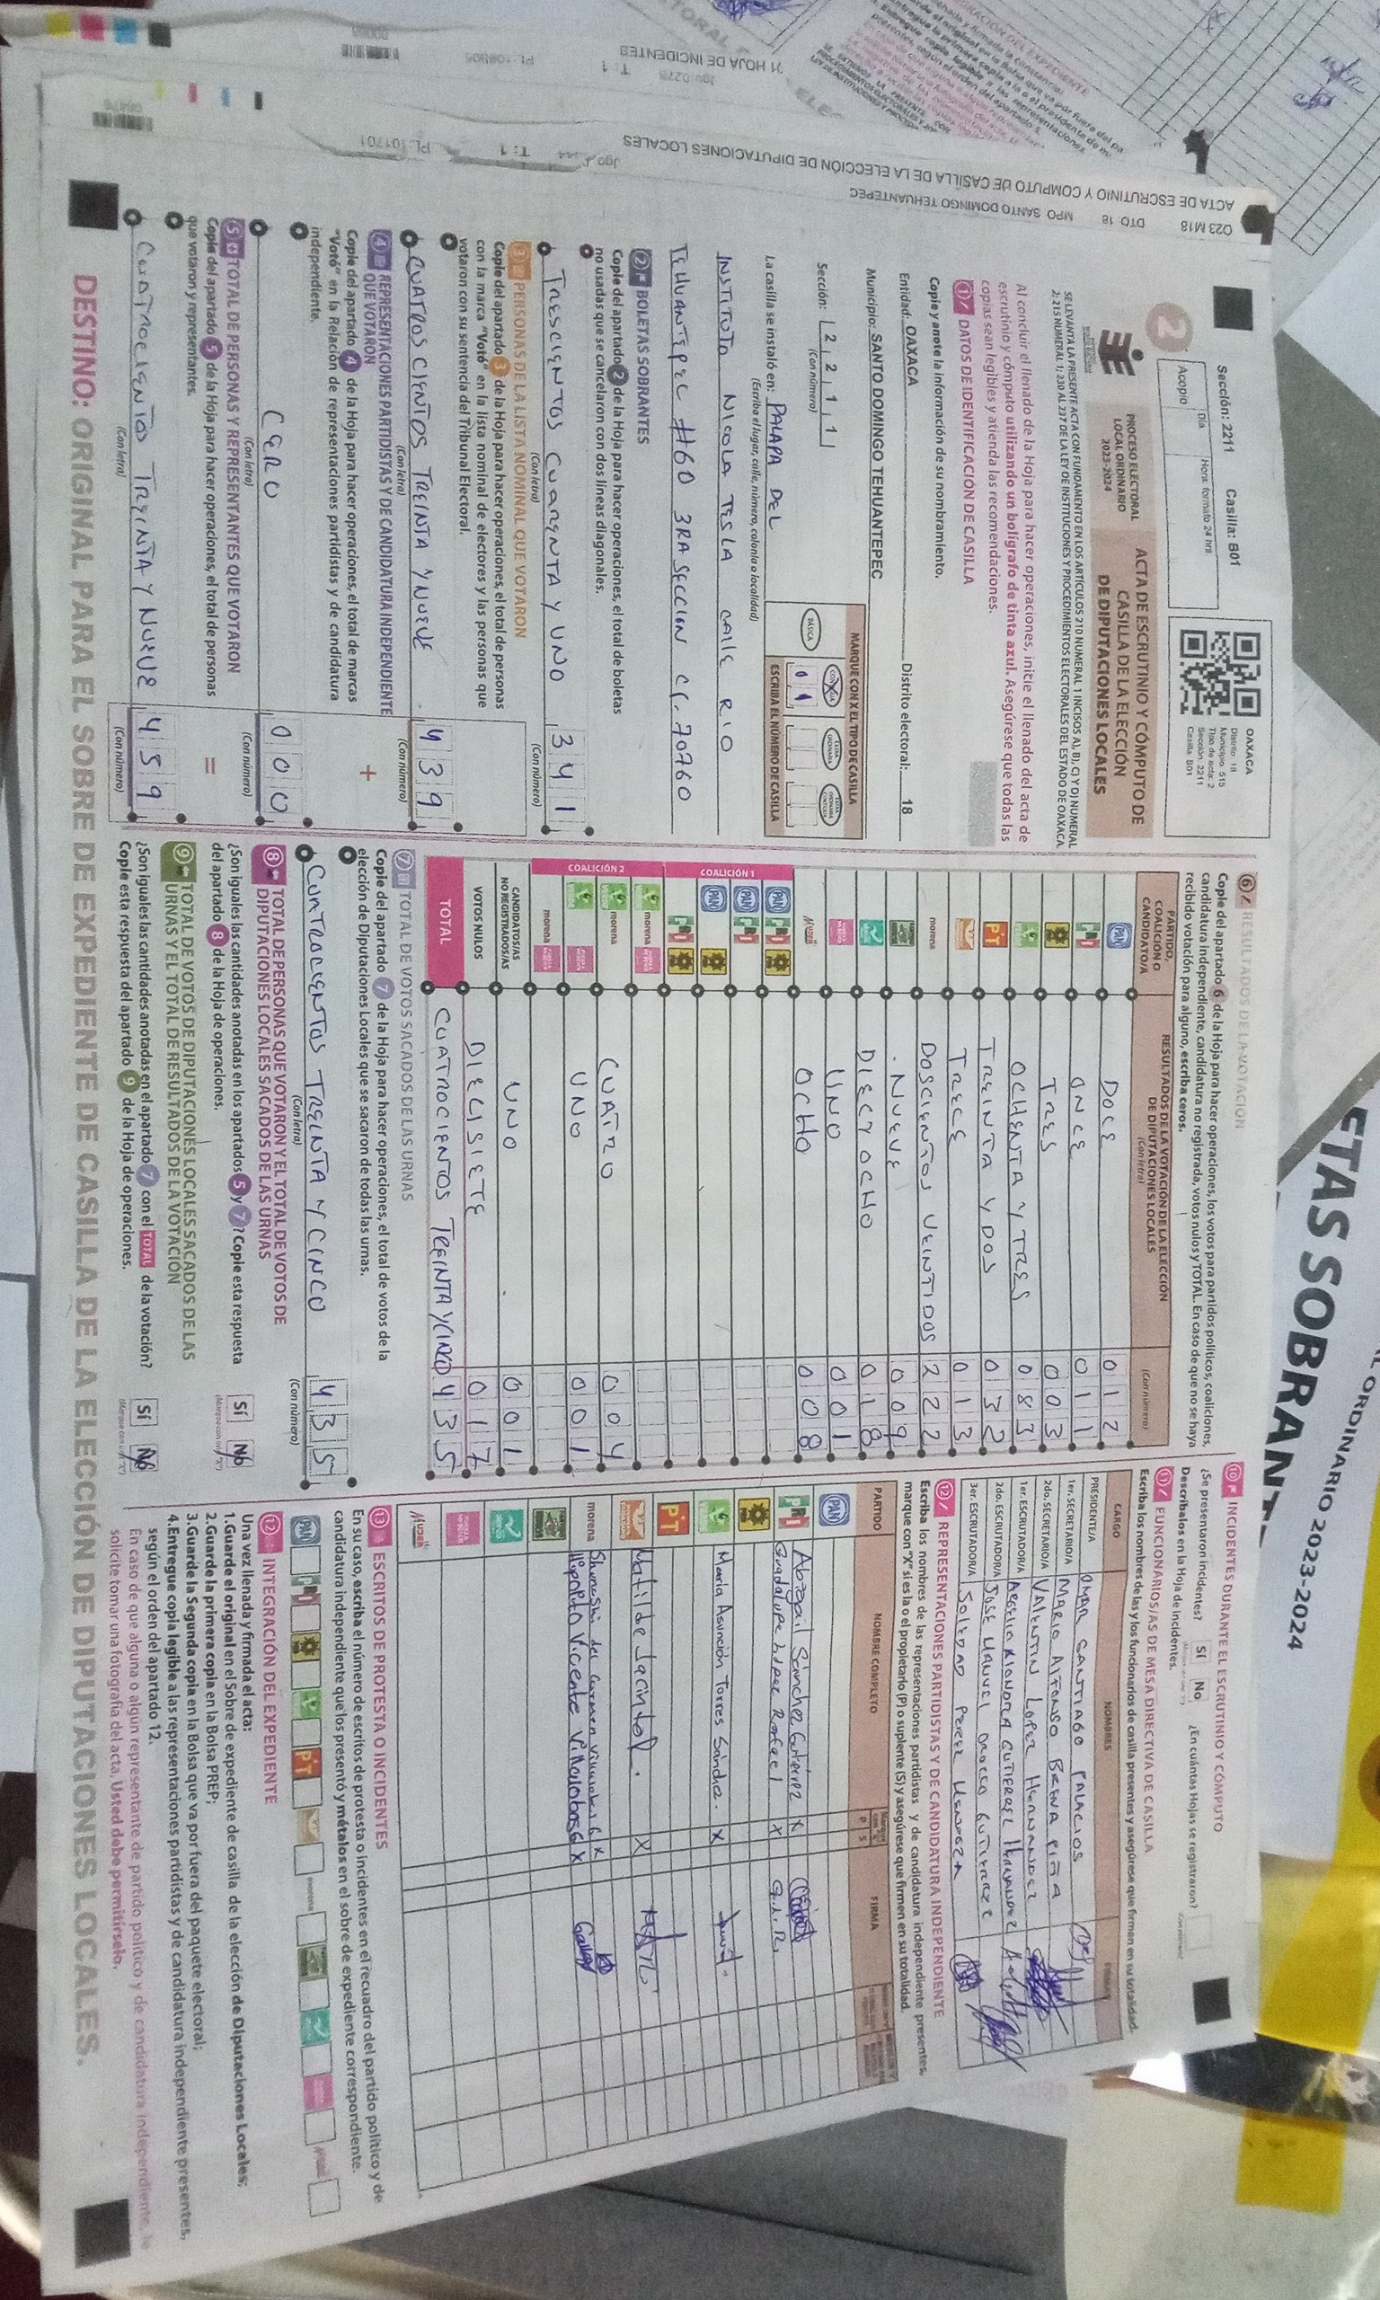 ETAS SOBRAN
L ORDINARIO 2023-2024
Sección: 2211 Casilla: B01
Día
Hora: formato 24 hrs
Acopio
2
OAXACA
Distrito: 18
Municipio: 515
Tipo de acta: 2
Sección: 2211
Casilla: B01
PROCESO ELECTORAL
LOCAL ORDINARIO
2023-2024
ACTA DE ESCRUTINIO Y CÓMPUTO DE
CASILLA DE LA ELECCIÓN
DE DIPUTACIONES LOCALES
SE LEVANTA LA PRESENTE ACTA CON FUNDAMENTO EN LOS ARTÍCULOS 210 NUMERAL 1 INCISOS A), B), C) Y D) NUMERAL
2; 215 NUMERAL 1; 230 AL 237 DE LA LEY DE INSTITUCIONES Y PROCEDIMIENTOS ELECTORALES DEL ESTADO DE OAXACA
Al concluir el llenado de la Hoja para hacer operaciones, inicie el llenado del acta de
escrutinio y cómputo utilizando un bolígrafo de tinta azul. Asegúrese que todas las
copias sean legibles y atienda las recomendaciones.
1 DATOS DE IDENTIFICACIÓN DE CASILLA
Copie y anote la información de su nombramiento.
Entidad: OAXACA Distrito electoral: 18
Municipio: SANTO DOMINGO TEHUANTEPEC
Sección: 2 2 1 1
(Con número)
MARQUE CON X EL TIPO DE CASILLA
BÁSICA
ESCRIBA EL NÚMERO DE CASILLA
0 1
La casilla se instaló en: PALAPA DEL
(Escriba el lugar, calle, número, colonia o localidad)
INSTITUTO NICOLA TESLA CALLE RIO
TEHUANTEPEC #60 3RA SECCION C.P. 70760
2 BOLETAS SOBRANTES
Copie del apartado 2 de la Hoja para hacer operaciones, el total de boletas
no usadas que se cancelaron con dos líneas diagonales.
TRESCIENTOS CUARENTA Y UNO 3 4 1
(Con letra) (Con número)
3 PERSONAS DE LA LISTA NOMINAL QUE VOTARON
Copie del apartado 3 de la Hoja para hacer operaciones, el total de personas
con la marca "Votó" en la lista nominal de electores y las personas que
votaron con su sentencia del Tribunal Electoral.
CUATROS CIENTOS TREINTA Y NUEVE 4 3 9
(Con letra) (Con número)
4 REPRESENTACIONES PARTIDISTAS Y DE CANDIDATURA INDEPENDIENTE
QUE VOTARON
Copie del apartado 4 de la Hoja para hacer operaciones, el total de marcas
"Votó" en la Relación de representaciones partidistas y de candidatura
independiente.
+
CERO 0 0 0
(Con letra) (Con número)
5 TOTAL DE PERSONAS Y REPRESENTANTES QUE VOTARON
Copie del apartado 5 de la Hoja para hacer operaciones, el total de personas
que votaron y representantes.
=
CUATROCIENTOS TREINTA Y NUEVE 4 3 9
(Con letra) (Con número)
6 RESULTADOS DE LA VOTACIÓN
Copie del apartado 6 de la Hoja para hacer operaciones, los votos para partidos políticos, coaliciones,
candidatura independiente, candidatura no registrada, votos nulos y TOTAL. En caso de que no se haya
recibido votación para alguno, escriba ceros.
PARTIDO,
COALICIÓN O
CANDIDATO/A
RESULTADOS DE LA VOTACIÓN DE LA ELECCIÓN
DE DIPUTACIONES LOCALES
(Con letra)
(Con número)
PAN DOCE 0 1 2
PRI ONCE 0 1 1
TRES 0 0 3
OCHENTA Y TRES 0 8 3
PT TREINTA Y DOS 0 3 2
TRECE 0 1 3
morena DOSCIENTOS VEINTIDOS 2 2 2
NUEVE 0 0 9
DIECY OCHO 0 1 8
UNO 0 0 1
OCHO 0 0 8
COALICIÓN 1
PAN PRI
PAN PRI
PAN
PRI
COALICIÓN 2
morena
morena CUATRO 0 0 4
UNO 0 0 1
morena
CANDIDATOS/AS
NO REGISTRADOS/AS
UNO 0 0 1
VOTOS NULOS DIECISIETE 0 1 7
TOTAL CUATROCIENTOS TREINTA Y CINCO 4 3 5
7 TOTAL DE VOTOS SACADOS DE LAS URNAS
Copie del apartado 7 de la Hoja para hacer operaciones, el total de votos de la
elección de Diputaciones Locales que se sacaron de todas las urnas.
CUATROCIENTOS TREINTA Y CINCO 4 3 5
(Con letra) (Con número)
8 TOTAL DE PERSONAS QUE VOTARON Y EL TOTAL DE VOTOS DE
DIPUTACIONES LOCALES SACADOS DE LAS URNAS
¿Son iguales las cantidades anotadas en los apartados 5 y 7? Copie esta respuesta
del apartado 8 de la Hoja de operaciones.
Sí No
9 TOTAL DE VOTOS DE DIPUTACIONES LOCALES SACADOS DE LAS
URNAS Y EL TOTAL DE RESULTADOS DE LA VOTACIÓN
¿Son iguales las cantidades anotadas en el apartado 7 con el TOTAL de la votación?
Copie esta respuesta del apartado 9 de la Hoja de operaciones.
Sí No
10 INCIDENTES DURANTE EL ESCRUTINIO Y CÓMPUTO
¿Se presentaron incidentes? Sí No ¿En cuántas Hojas se registraron?
Descríbalos en la Hoja de incidentes.
11 FUNCIONARIOS/AS DE MESA DIRECTIVA DE CASILLA
Escriba los nombres de las y los funcionarios de casilla presentes y asegúrese que firmen en su totalidad.
CARGO NOMBRES
PRESIDENTE/A OMAR SANTIAGO PALACIOS
1er. SECRETARIO/A MARIO ALFONSO BRENA PIÑA
2do. SECRETARIO/A VALENTIN LOPEZ HERNANDEZ
1er. ESCRUTADOR/A
2do. ESCRUTADOR/A JOSE MANUEL OROZCO GUTIERREZ
3er. ESCRUTADOR/A SOLEDAD PEREZ MENDOZA
12 REPRESENTACIONES PARTIDISTAS Y DE CANDIDATURA INDEPENDIENTE
Escriba los nombres de las representaciones partidistas y de candidatura independiente presentes,
marque con "X" si es la o el propietario (P) o suplente (S) y asegúrese que firmen en su totalidad.
PARTIDO NOMBRE COMPLETO P S FIRMA
PAN
PRI Abigail Sánchez Gutiérrez X
Guadalupe López Rafael X G.L.R.
María Asunción Torres Sánchez. X
PT
Matilde Jacinto X
morena
13 ESCRITOS DE PROTESTA O INCIDENTES
En su caso, escriba el número de escritos de protesta o incidentes en el recuadro del partido político y de
candidatura independiente que los presentó y métalos en el sobre de expediente correspondiente.
PAN PRI PT morena
12 INTEGRACIÓN DEL EXPEDIENTE
Una vez llenada y firmada el acta:
1.Guarde el original en el Sobre de expediente de casilla de la elección de Diputaciones Locales;
2.Guarde la primera copia en la Bolsa PREP;
3.Guarde la Segunda copia en la Bolsa que va por fuera del paquete electoral;
4.Entregue copia legible a las representaciones partidistas y de candidatura independiente presentes,
según el orden del apartado 12.
En caso de que alguna o algun representante de partido político y de candidatura independiente, le
solicite tomar una fotografía del acta, Usted debe permitírselo.
DESTINO: ORIGINAL PARA EL SOBRE DE EXPEDIENTE DE CASILLA DE LA ELECCIÓN DE DIPUTACIONES LOCALES.
O23 M18 DTO 18 MPO SANTO DOMINGO TEHUANTEPEC
ACTA DE ESCRUTINIO Y COMPUTO DE CASILLA DE LA ELECCIÓN DE DIPUTACIONES LOCALES
T: 1
PL: 101701
31 HOJA DE INCIDENTES
T: 1